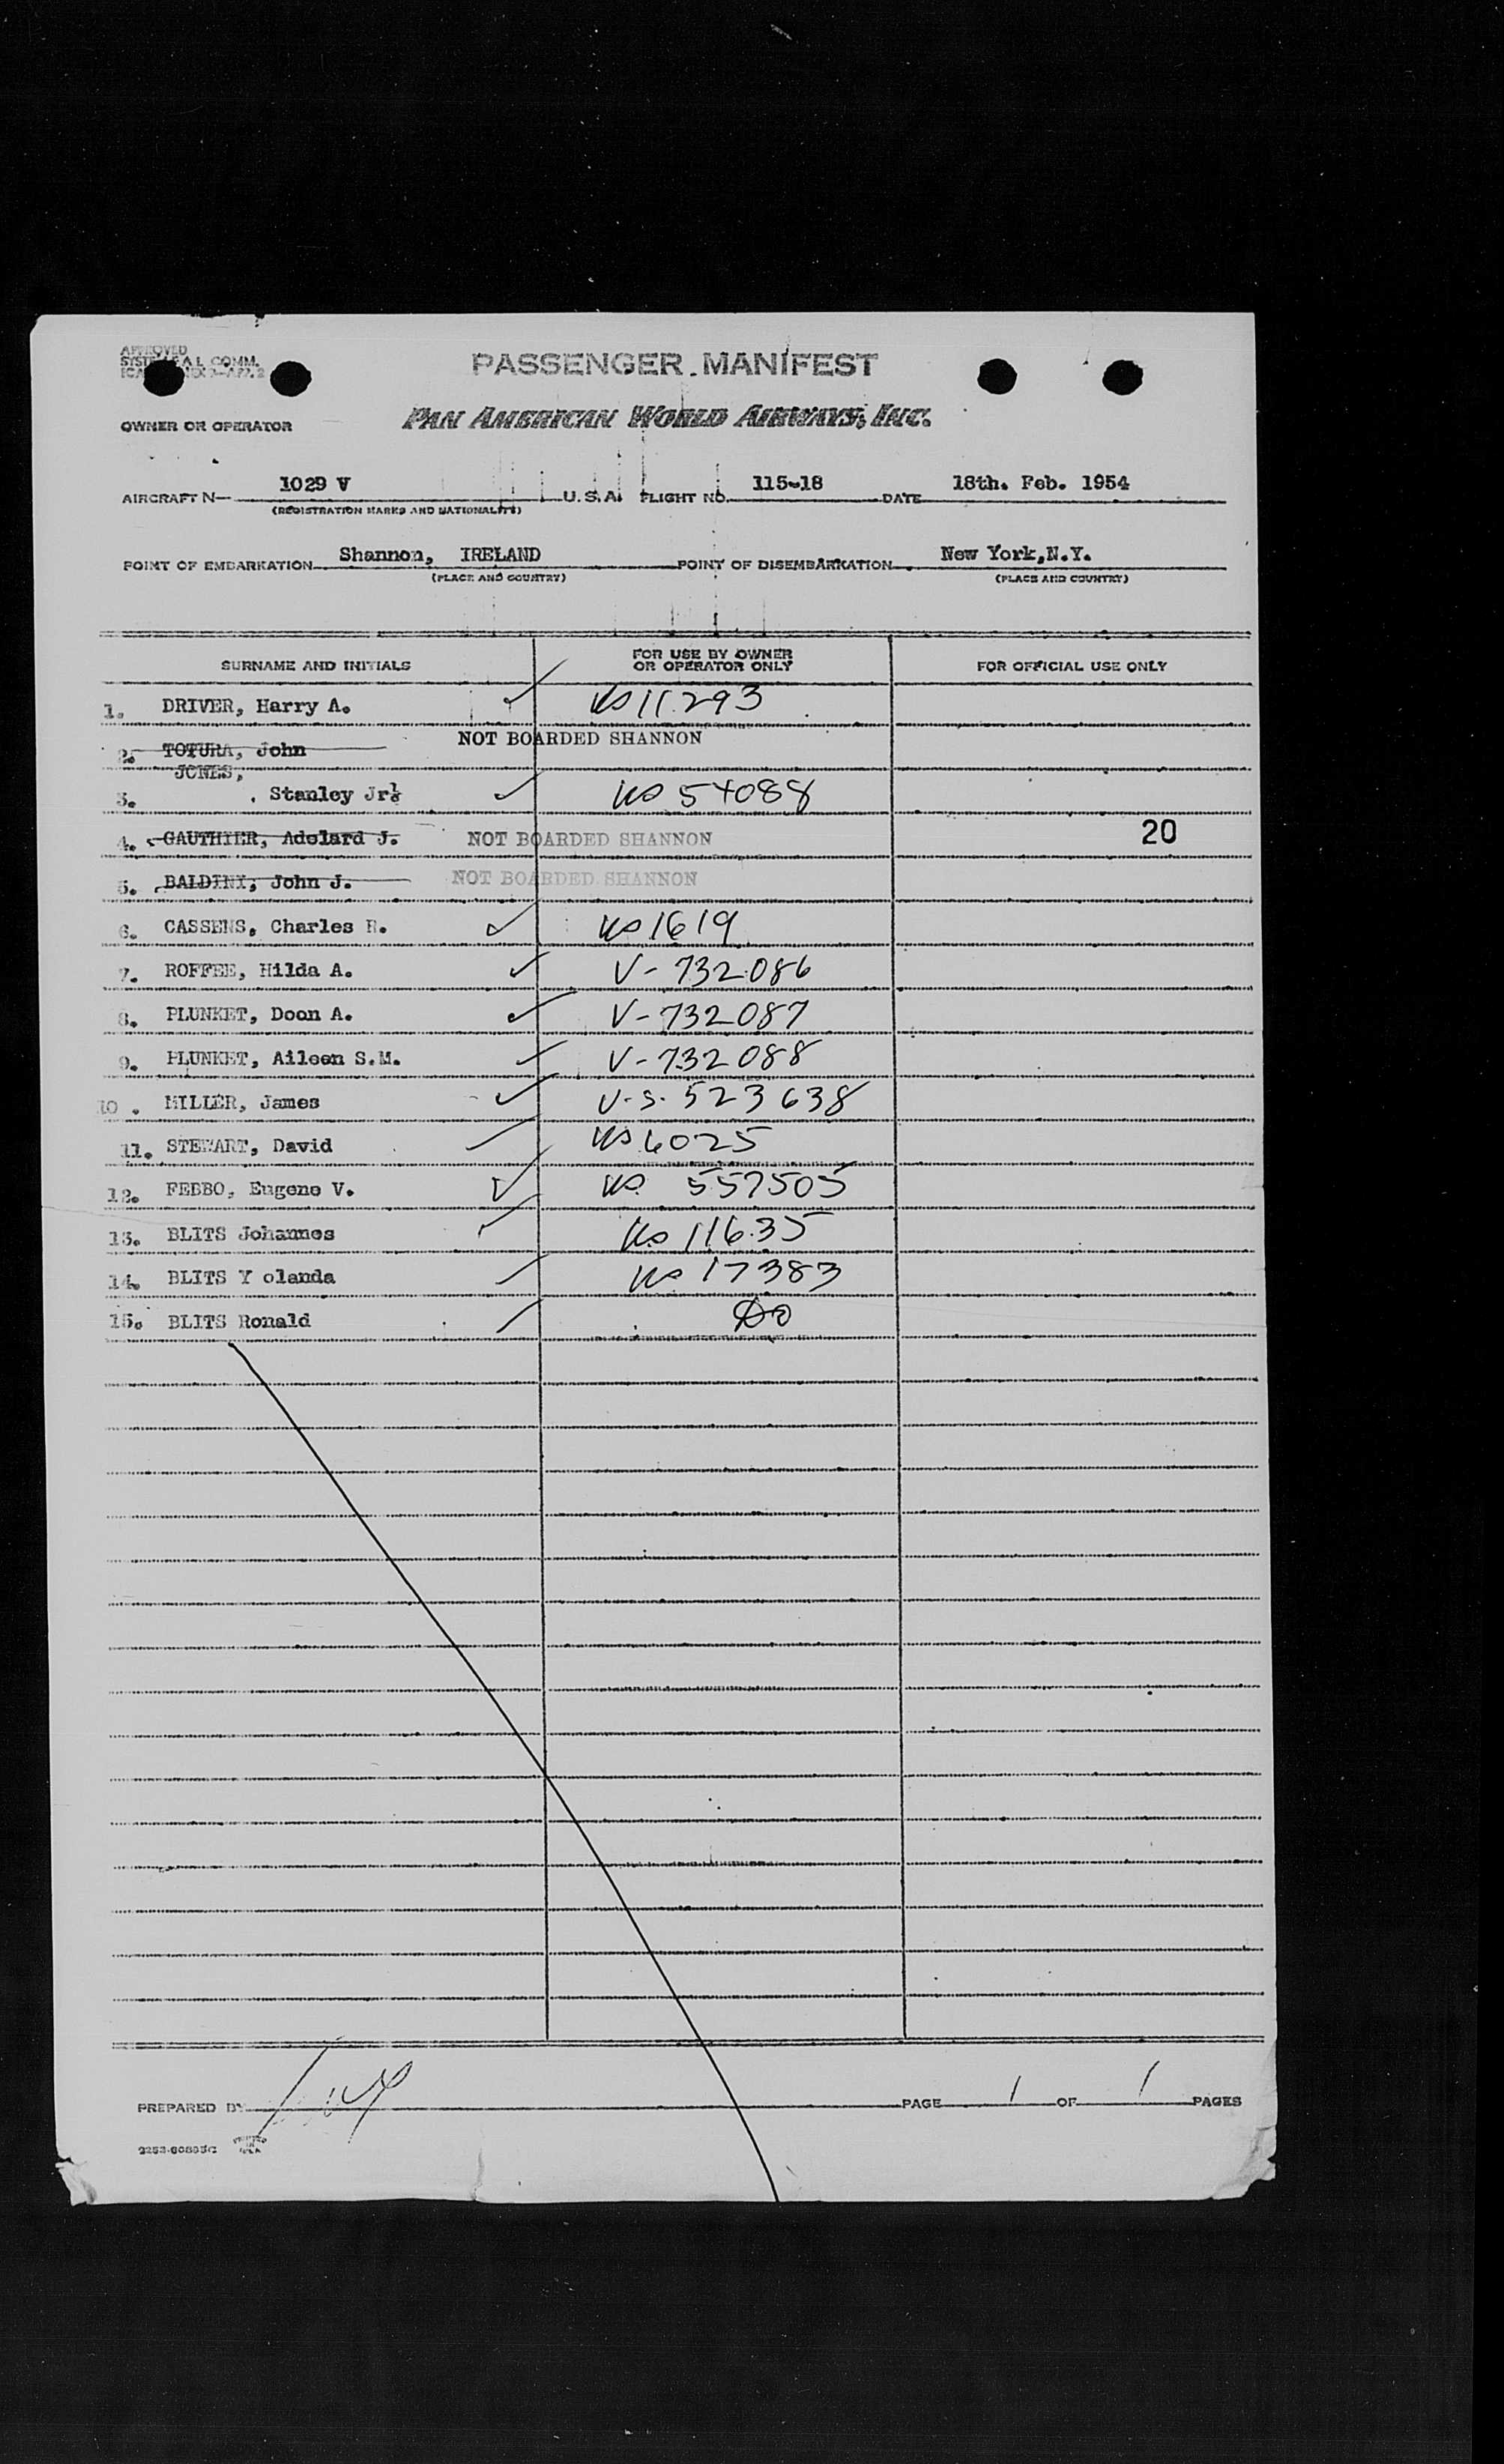 APPROVED
PASSENGER MANIFEST
OWNER OR OPERATOR PAN AMERICAN WORLD AIRWAYS, INC.
AIRCRAFT N— 1029 V U.S.A. FLIGHT NO. 115-18 DATE 18th. Feb. 1954
(REGISTRATION MARKS AND NATIONALITY)
POINT OF EMBARKATION Shannon, IRELAND POINT OF DISEMBARKATION New York,N.Y.
(PLACE AND COUNTRY) (PLACE AND COUNTRY)
SURNAME AND INITIALS FOR USE BY OWNER OR OPERATOR ONLY FOR OFFICIAL USE ONLY
1. DRIVER, Harry A. ✓ US 11293
2. TOTURA, John NOT BOARDED SHANNON
JONES,
3. . Stanley Jr. ✓ US 54088
4. GAUTHIER, Adelard J. NOT BOARDED SHANNON 20
5. BALDINI, John J. NOT BOARDED SHANNON
6. CASSENS, Charles R. ✓ US 1619
7. ROFFEE, Hilda A. ✓ V-732086
8. PLUNKET, Doon A. ✓ V-732087
9. PLUNKET, Aileen S.M. ✓ V-732088
10 . MILLER, James ✓ U.S. 523638
11. STEWART, David US 6025
12. FEBBO, Eugene V. ✓ US 557505
13. BLITS Johannes ✓ US 11635
14. BLITS Y olanda US 17383
15. BLITS Ronald Do
PREPARED BY PAGE 1 OF 1 PAGES